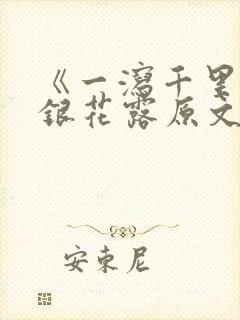 《一泻千里
银花露原文
安束尼